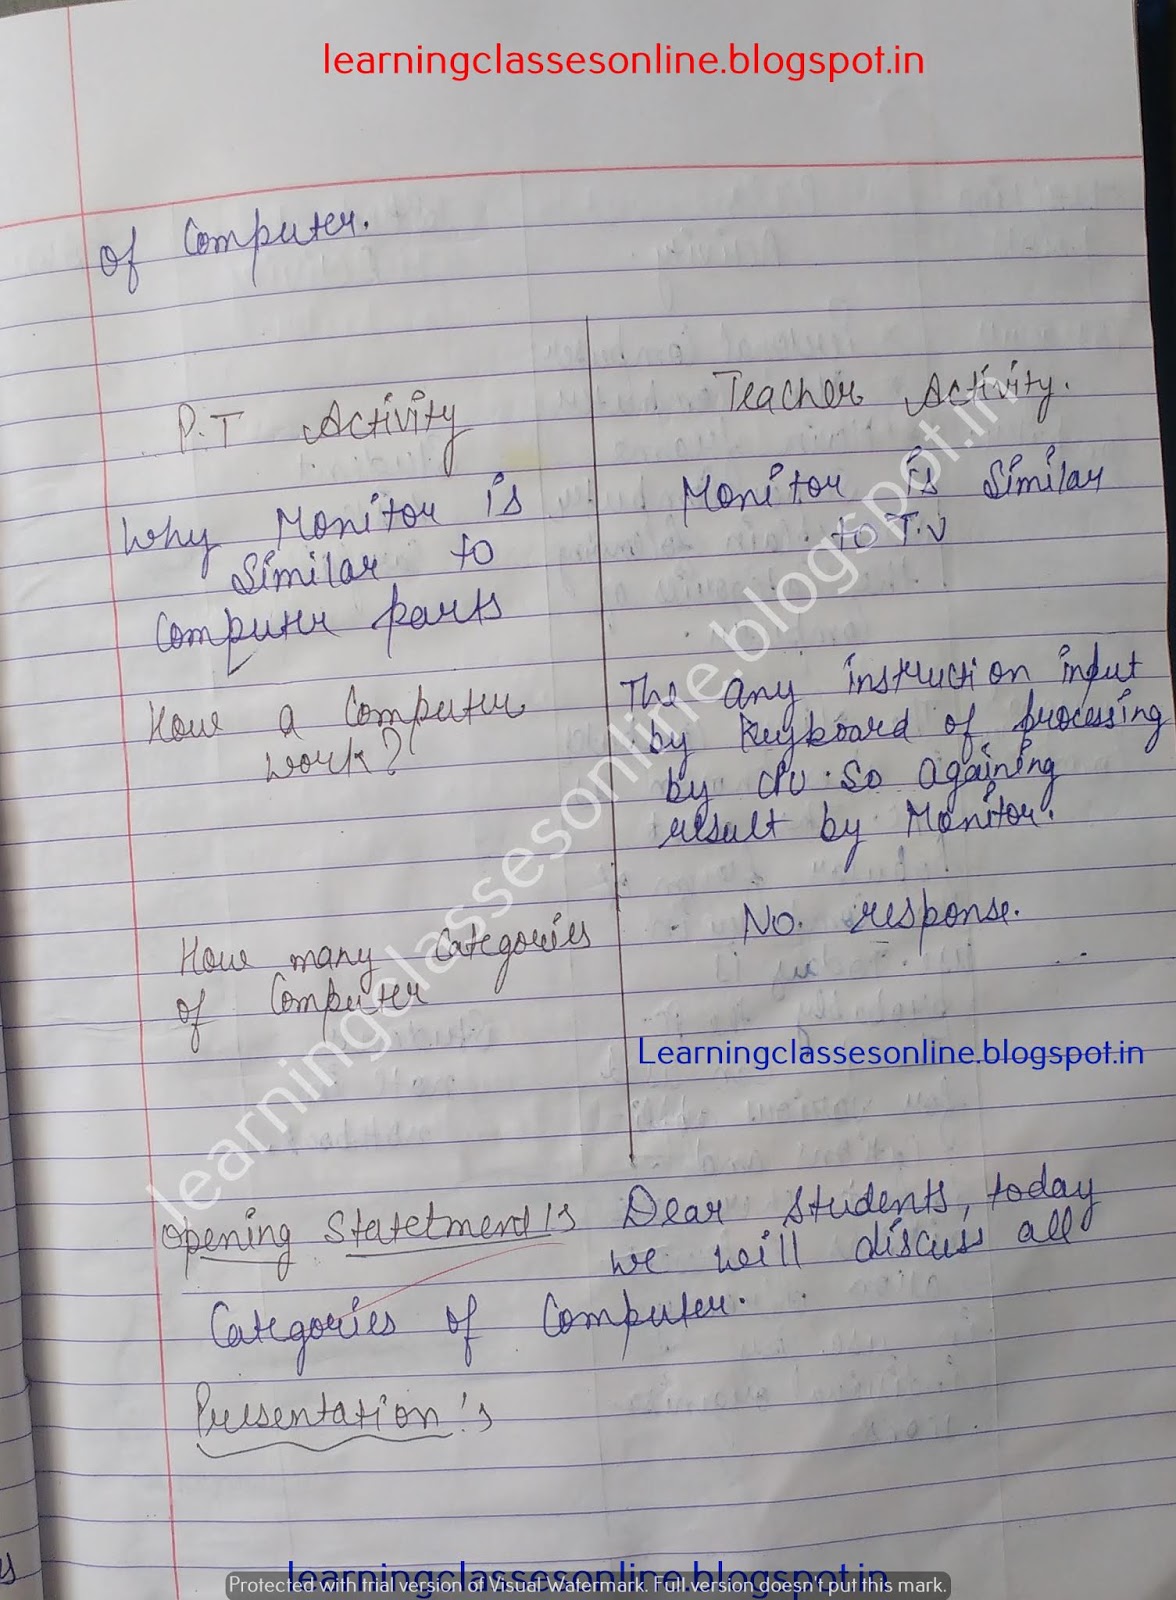 learningclassesonline.blogspot.in
of Computer.
P.T Activity
Why Monitor is
Similar to
Computer parts
How a Computer
work?
How many Categories
of Computer
Teacher Activity.
Monitor is Similar
to T.V
The any instruction input
by Keyboard of processing
by CPU. So againing
result by Monitor.
No. response.
Learningclassesonline.blogspot.in
learningclassesonline.blogspot.in
Opening Statetment is Dear Students, today
we will discuss all
Categories of Computer.
Presentation:
learningclassesonline.blogspot.in
Protected with trial version of Visual Watermark. Full version doesn't put this mark.